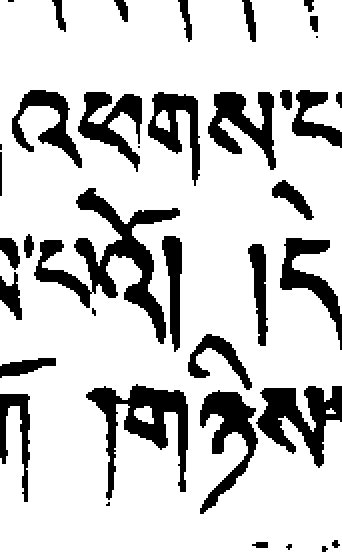 འཕགས་པ
པའོ། །དེ
།གཉིས